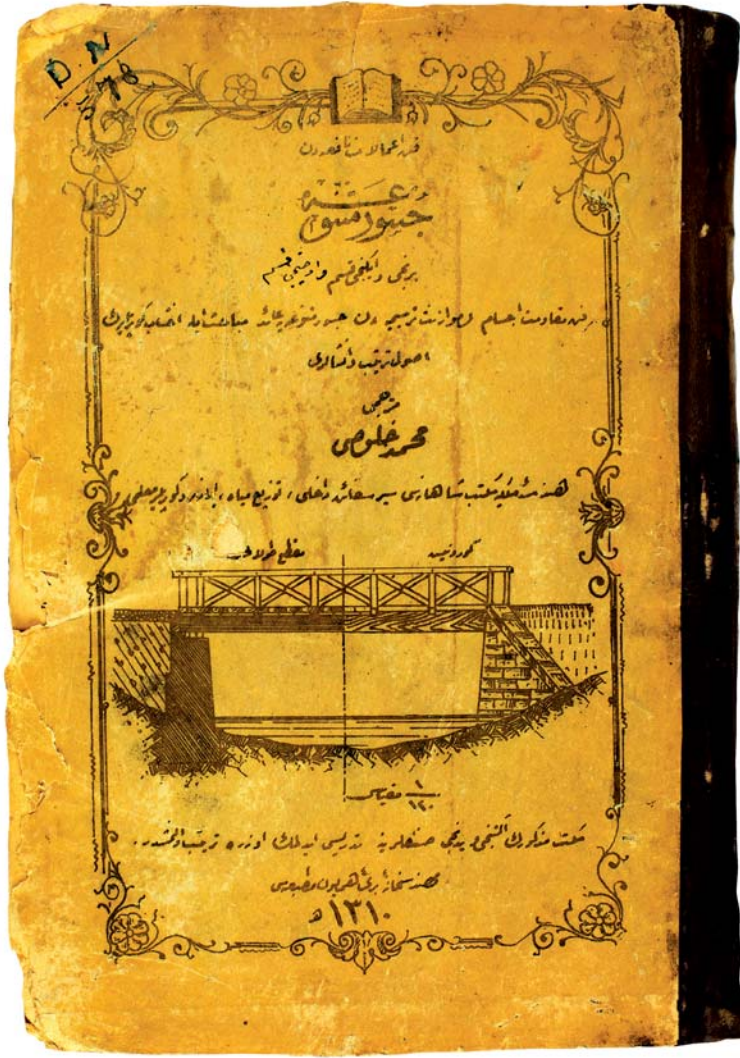 D.N
578
فن اعمالات نافعه‌دن
جسور متنوعه
برنجی و ایکنجی قسم و اوچنجی قسم
فن مقاومت اجسام و موازنت ترسیمیه‌دن جسور متنوعه‌یه عائد مباحث ایله اخشاب کوپریلرك
اصول ترتیب و انشالری
مترجمی
محمد خلوصی
هندسهٔ ملکیه مکتب شاهانه‌سی سیر سفائن داخلی، توزیع میاه، و کوپری معلمی
مقطع طولانی
کورونیش
١/١٢٠ مقیاس
مکتب مذکورك آلتنجی و یدنجی صنفلرینه تدریس ایدلمك اوزره ترتیب اولنمشدر.
مهندسخانهٔ بری همایون مطبعه‌سی
١٣١٠ ه